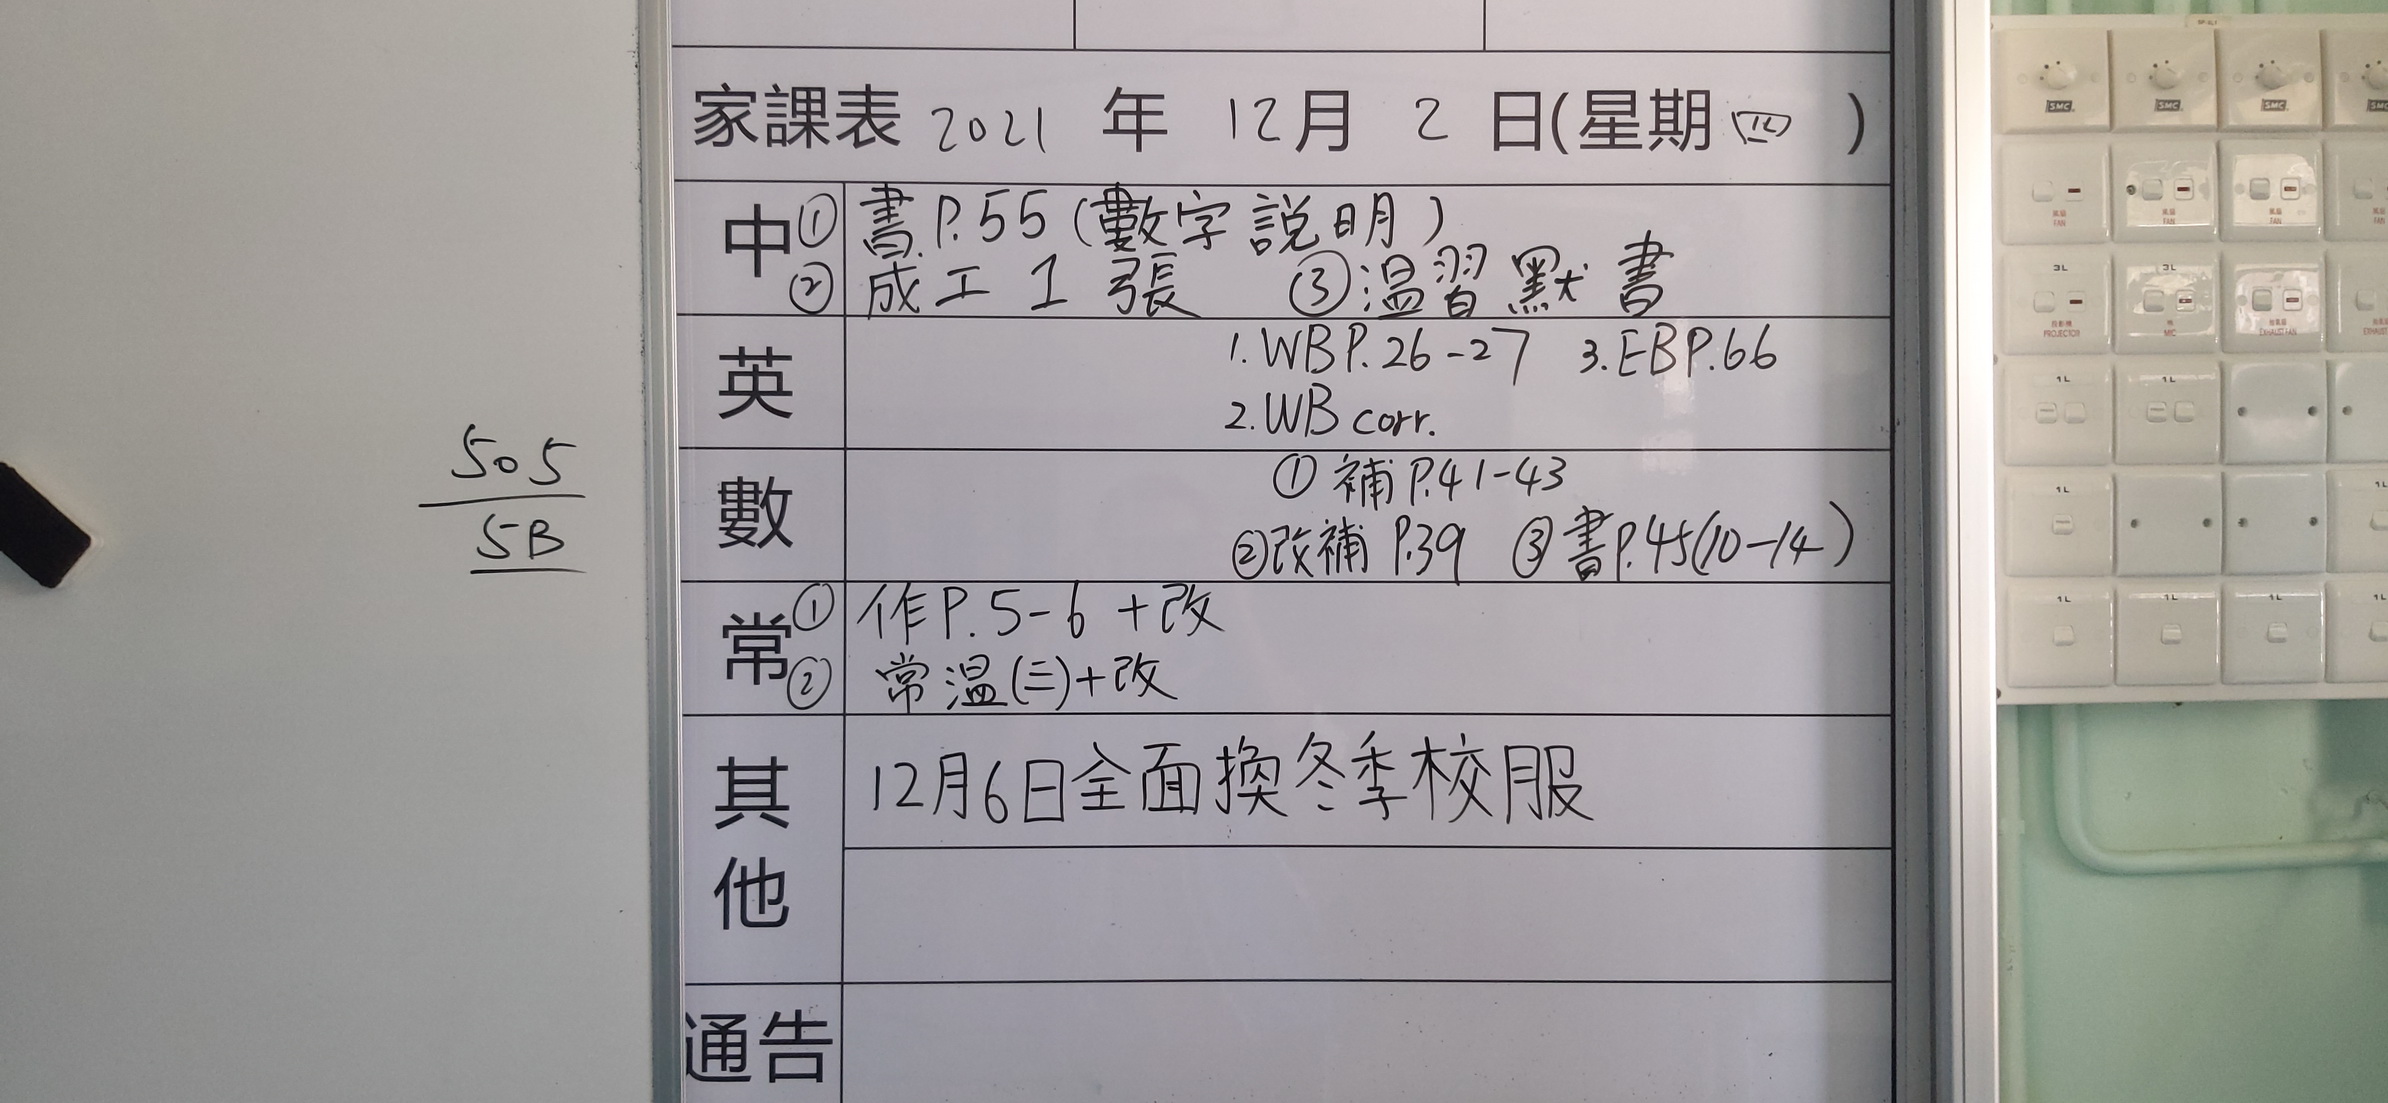 家課表 2021 年 12月 2 日(星期四)
中 ① 書P.55(數字說明)
② 成工1張 ③溫習默書
英 1.WBP.26-27 3.EBP.66
2.WB corr.
數 ① 補P.41-43
②改補P.39 ③書P.45(10-14)
常 ① 作P.5-6+改
② 常溫(三)+改
其他 12月6日全面換冬季校服
通告
505
5B
SMC SMC SMC SMC
風扇 風扇 風扇
FAN FAN FAN FAN
3L 3L
投影機 咪 抽氣扇
PROJECTOR MIC EXHAUST FAN EXHAUST
1L 1L
1L 1L
1L 1L 1L 1L